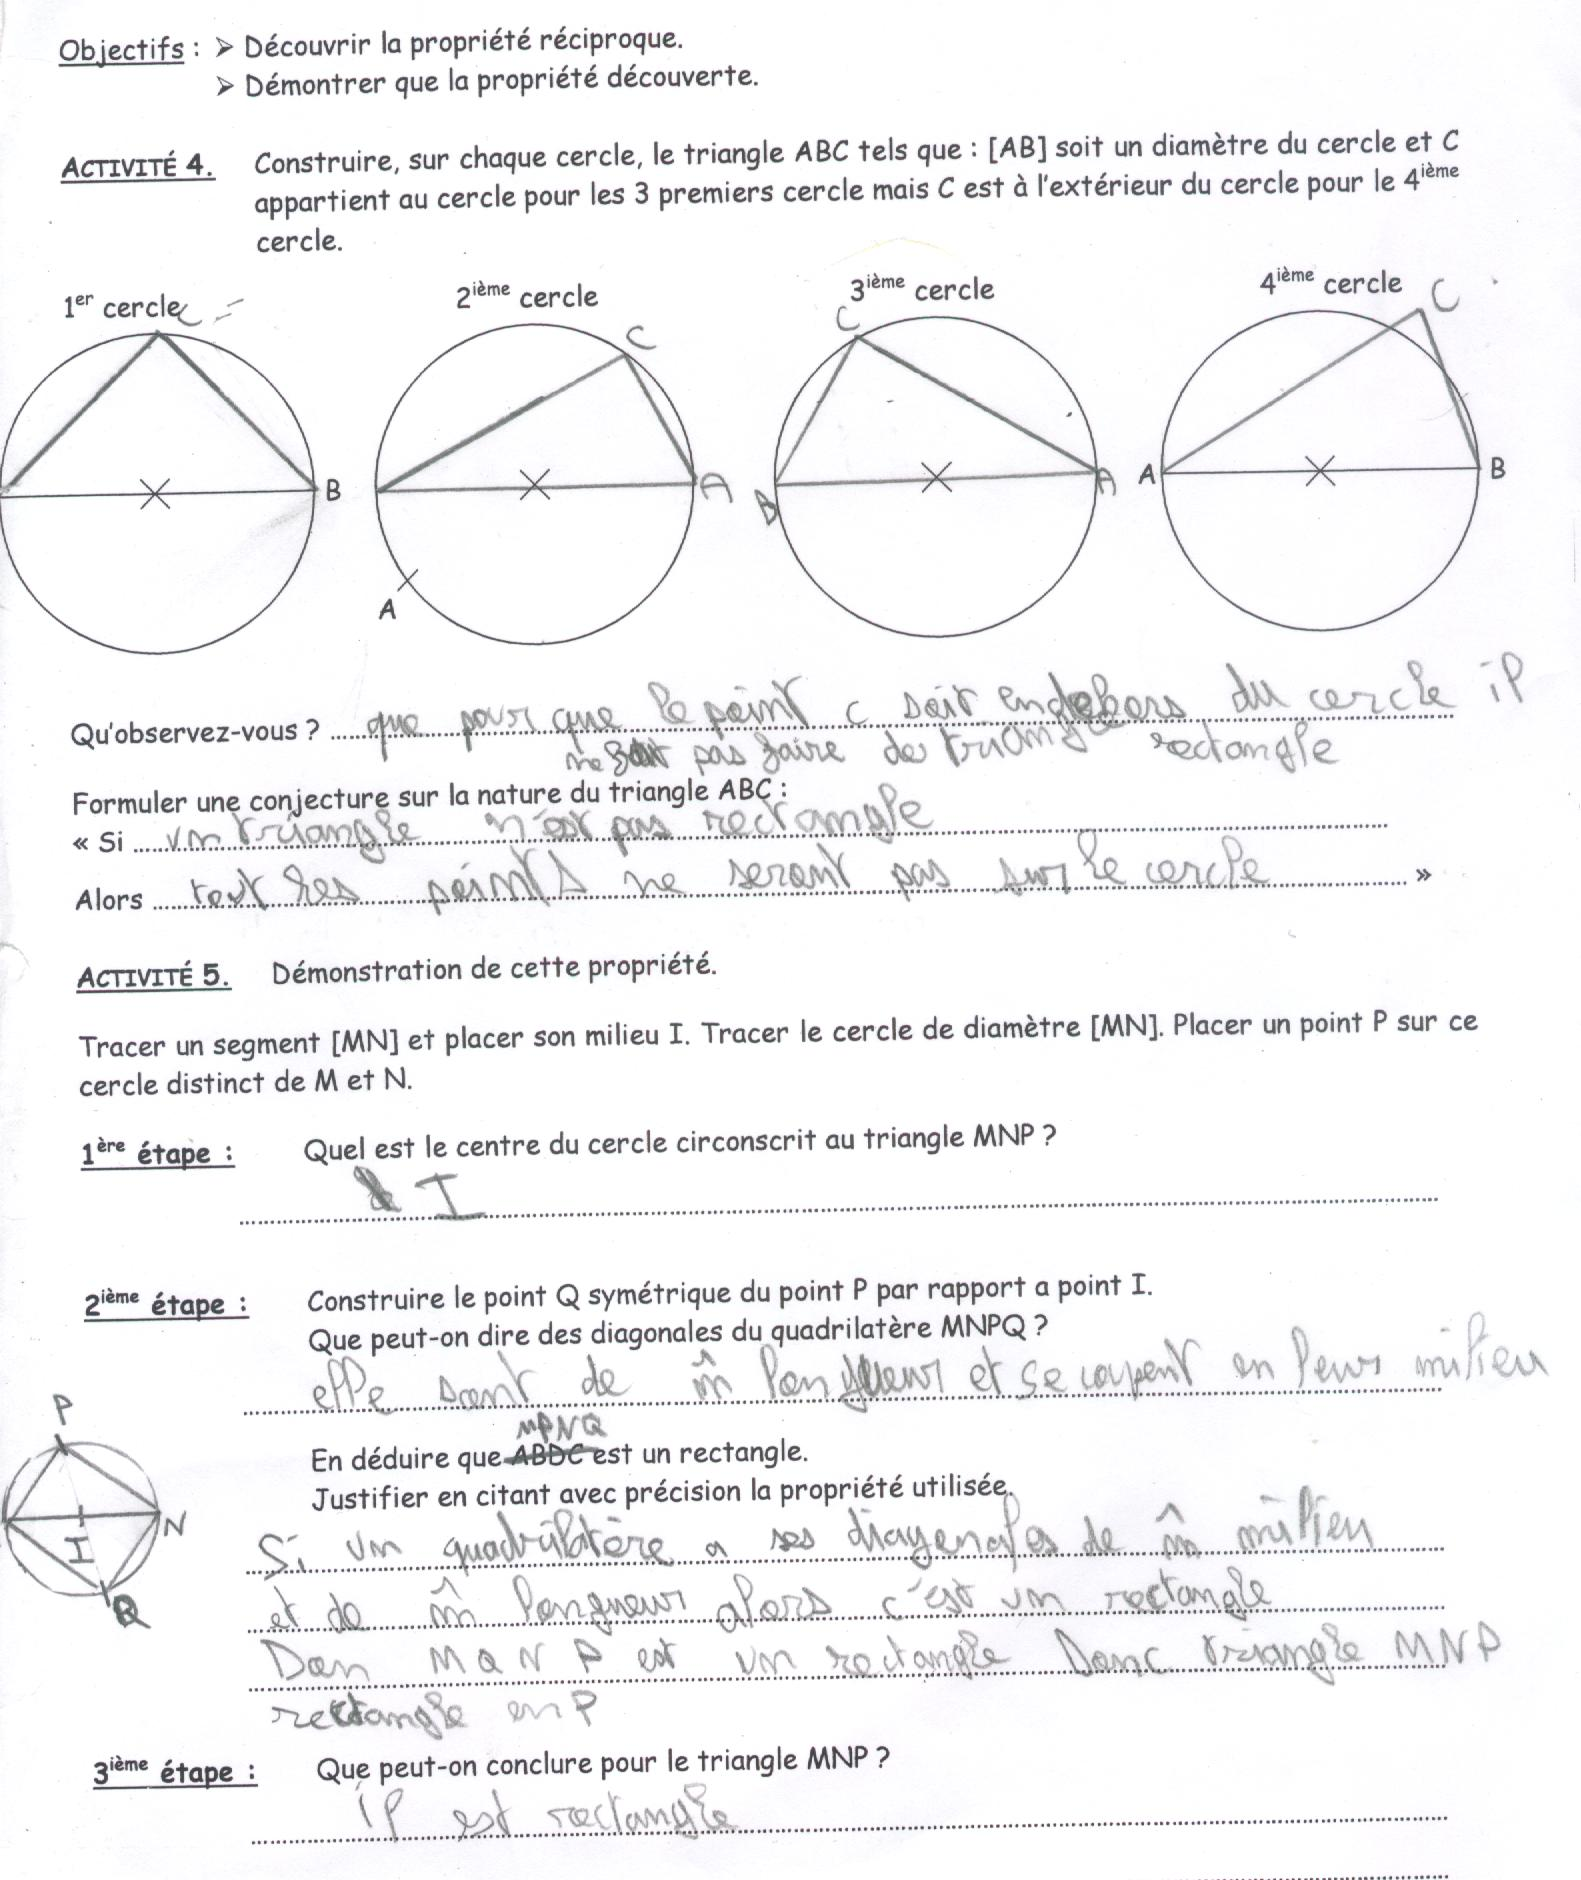 Objectifs : ➢ Découvrir la propriété réciproque.
➢ Démontrer que la propriété découverte.
ACTIVITÉ 4. Construire, sur chaque cercle, le triangle ABC tels que : [AB] soit un diamètre du cercle et C
appartient au cercle pour les 3 premiers cercle mais C est à l'extérieur du cercle pour le 4ième
cercle.
1er cercle
2ième cercle
3ième cercle
4ième cercle
C
C
C
C
B
A
B
A
A
B
A
Qu'observez-vous ? que pour que le point c soit en dehors du cercle il
ne pas faire de triangle rectangle
Formuler une conjecture sur la nature du triangle ABC :
« Si un triangle n'est pas rectangle
Alors tout les points ne seront pas sur le cercle »
ACTIVITÉ 5. Démonstration de cette propriété.
Tracer un segment [MN] et placer son milieu I. Tracer le cercle de diamètre [MN]. Placer un point P sur ce
cercle distinct de M et N.
1ère étape : Quel est le centre du cercle circonscrit au triangle MNP ?
I
2ième étape : Construire le point Q symétrique du point P par rapport a point I.
Que peut-on dire des diagonales du quadrilatère MNPQ ?
elle sont de m̂ longueur et se coupent en leurs milieu
P
N
I
Q
MPNQ
En déduire que ABDC est un rectangle.
Justifier en citant avec précision la propriété utilisée.
Si un quadrilatère a ses diagonales de m̂ milieu
et de m̂ longueur alors c'est un rectangle
Don M Q N P est un rectangle Donc triangle MNP
rectangle en P
3ième étape : Que peut-on conclure pour le triangle MNP ?
il est rectangle